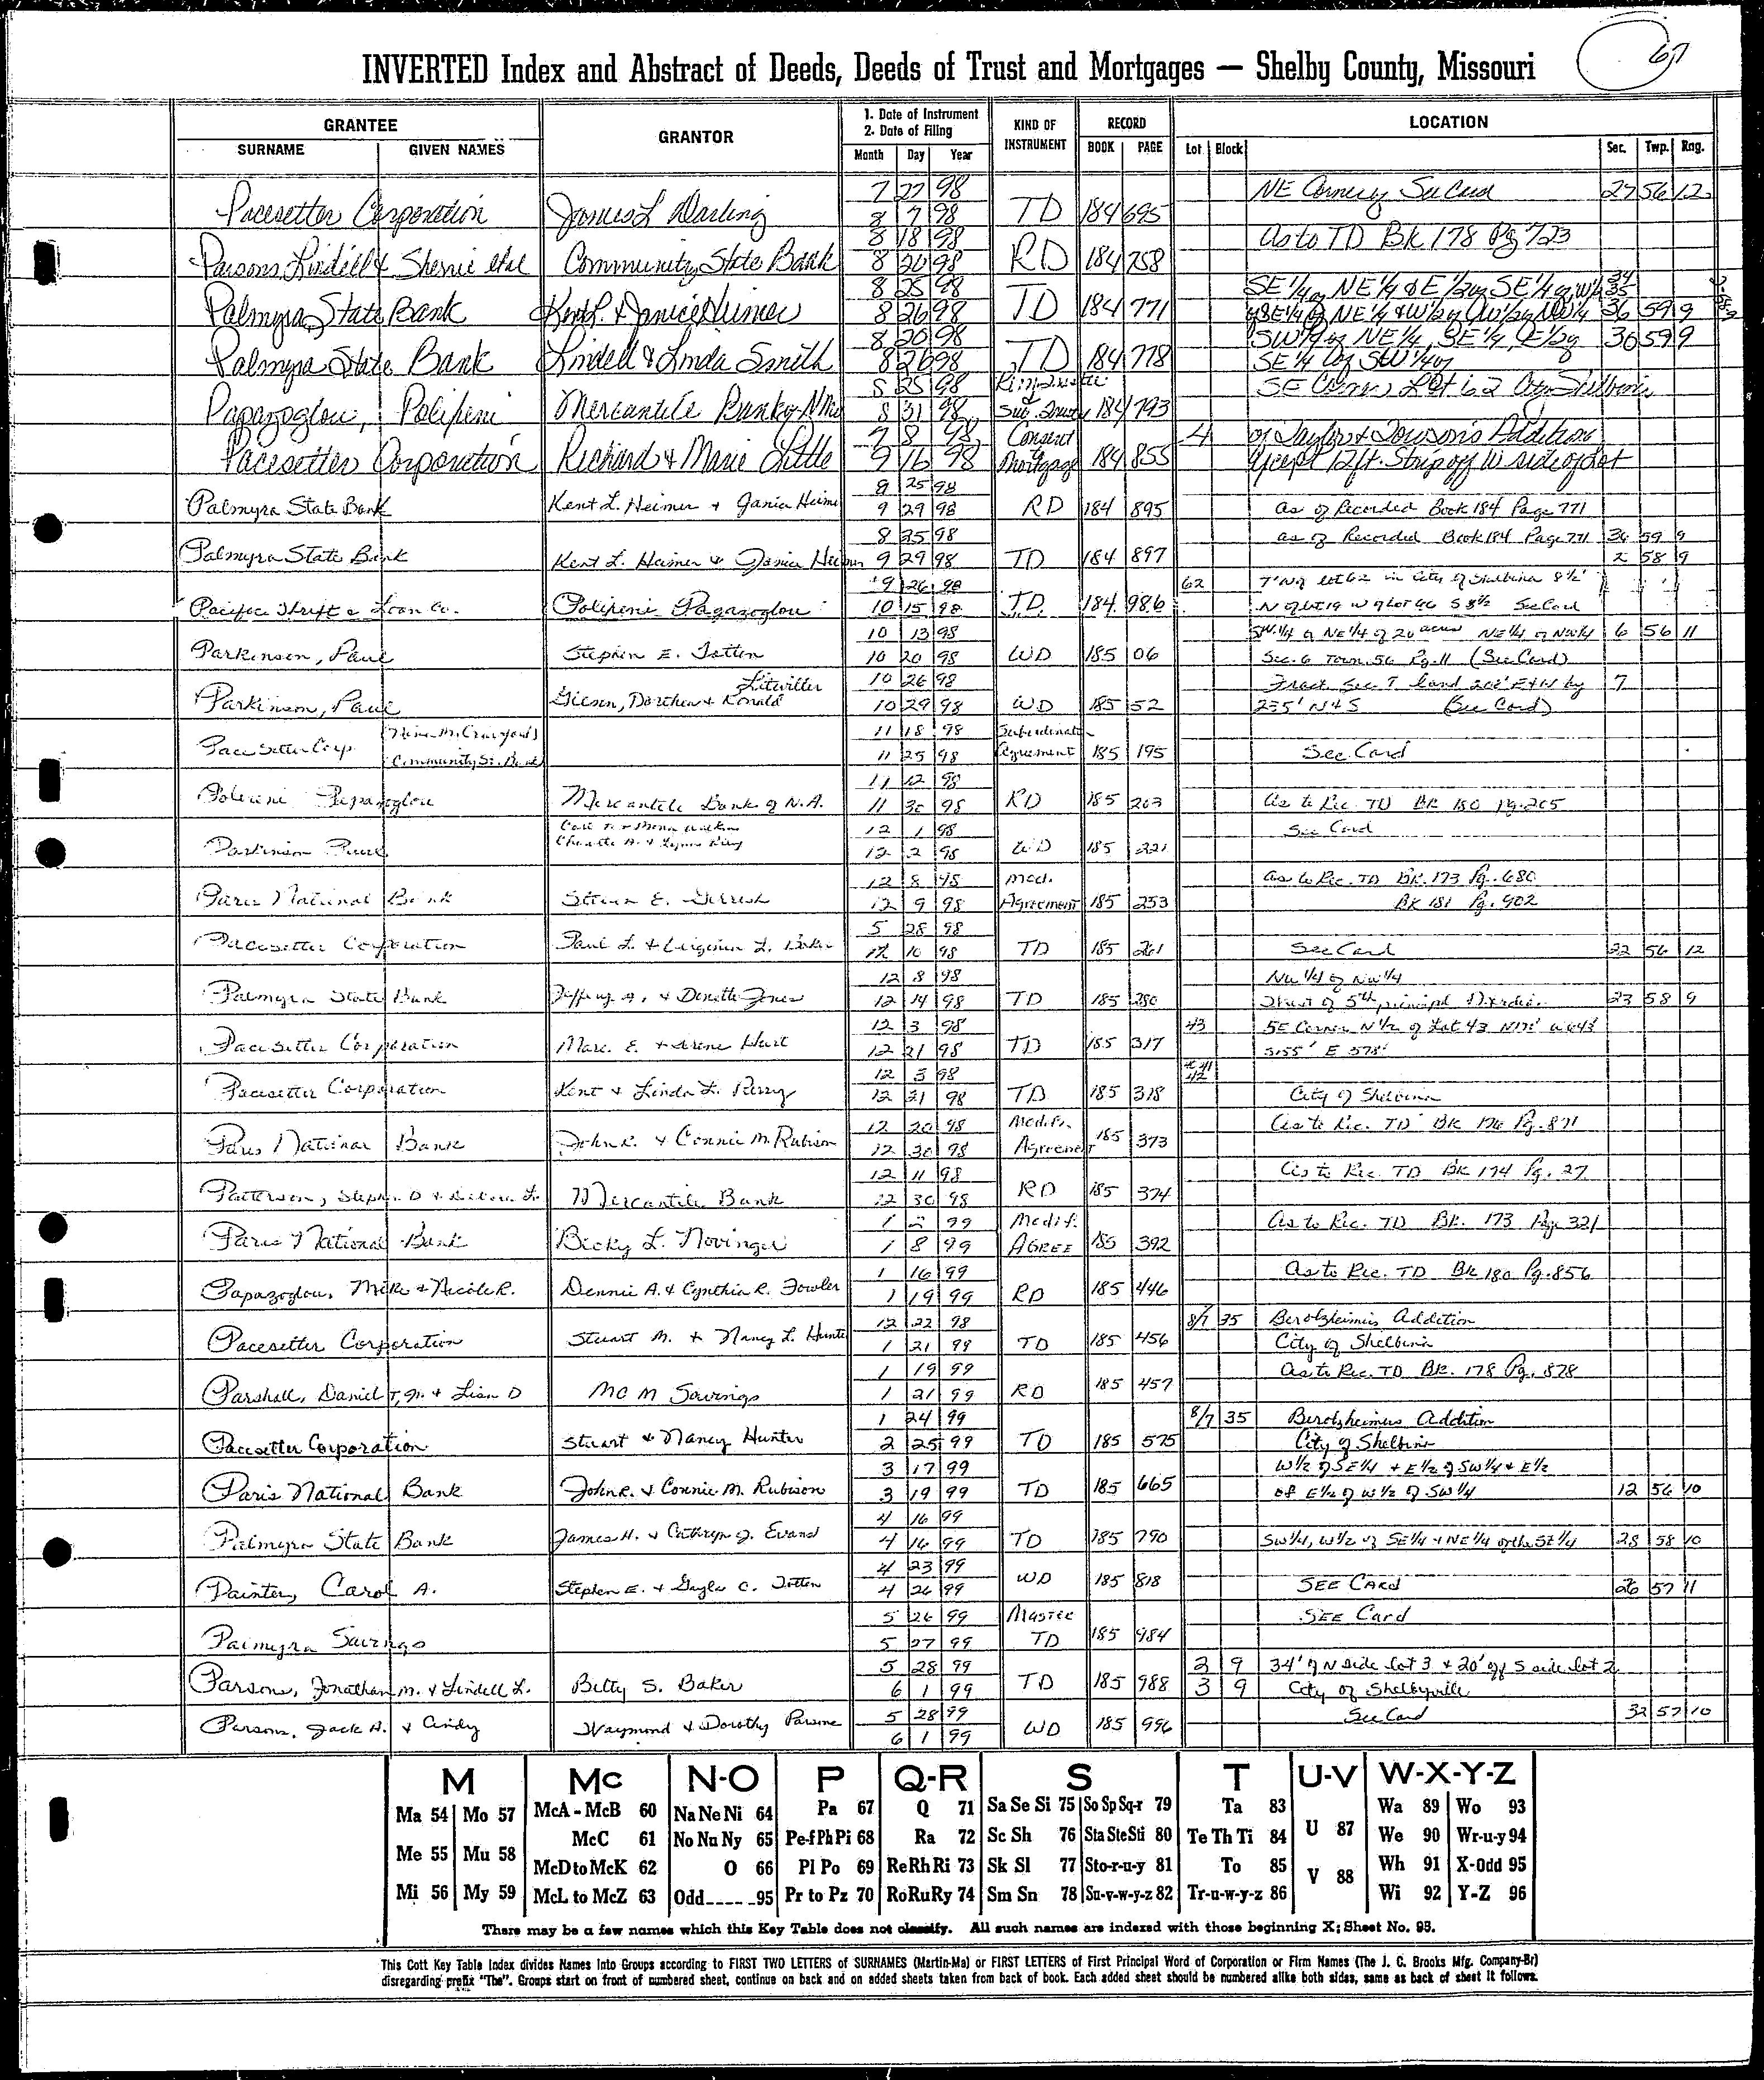 67
INVERTED Index and Abstract of Deeds, Deeds of Trust and Mortgages — Shelby County, Missouri
GRANTEE
SURNAME GIVEN NAMES
GRANTOR
1. Date of Instrument
2. Date of Filing
Month Day Year
KIND OF INSTRUMENT
RECORD
BOOK PAGE
LOCATION
Lot Block Sec. Twp. Rng.
7 27 98 NE Corner of See Card 27 56 12
Pacesetter Corporation James L Darling 8 7 98 TD 184 695
8 18 98 As to TD Bk 178 Pg 723
Parsons, Lindell & Sherrie etal Community State Bank 8 20 98 RD 184 758
8 25 98 SE 1/4 of NE 1/4 & E 1/2 of SE 1/4
Palmyra State Bank Kent L. & Janice Heimer 8 26 98 TD 184 771 36 59 9
8 20 98 SW 1/4 of NE 1/4, SE 1/4, E 1/2 of 36 59 9
Palmyra State Bank Lindell & Linda Smith 8 26 98 TD 184 778 SE 1/4 of SW 1/4
8 25 98 SE Corner Lot 62 City Shelbina
Papazoglou, Polixeni Mercantile Bank of N 8 31 98 Sub. Trust 184 793
7 8 98 Consent 4 of Taylor & Towson's Addition
Pacesetter Corporation Richard & Marie Little 9 16 98 Mortgage 184 855 Except 12 ft. Strip off W side of Lot
9 25 98
Palmyra State Bank Kent L. Heimer & Janice Heimer 9 29 98 RD 184 895 as of Recorded Book 184 Page 771
8 25 98 as of Recorded Book 184 Page 771 36 59 9
Palmyra State Bank Kent L. Heimer & Janice Heimer 9 29 98 TD 184 897 2 58 9
9 26 98 62 7' N of Lot 62 in City of Shelbina 8 1/2'
Pacific Thrift & Loan Co. Polixeni Papazoglou 10 15 98 TD 184 986 N of Lot 19 W of Lot 46 S 8 1/2 See Card
10 13 98 SW 1/4 of NE 1/4 of 20 acres NE 1/4 of NW 1/4 6 56 11
Parkinson, Paul Stephen E. Totten 10 20 98 WD 185 06 Sec. 6 Town. 56 Rg. 11 (See Card)
Litwiller 10 26 98 Fract. Sec. 7 land 208' E & W by 7
Parkinson, Paul Giesen, Dorthea & Ronald 10 29 98 WD 185 52 235' N & S (See Card)
11 18 98 Subordination
Pacesetter Corp Community St. Bank 11 25 98 Agreement 185 195 See Card
11 12 98
Polixeni Papazoglou Mercantile Bank of N.A. 11 30 98 RD 185 203 As to Rec. TD BK 180 Pg. 265
12 1 98 See Card
Parkinson Paul 12 2 98 WD 185 221
12 8 98 Mod. As to Rec. TD BK. 173 Pg. 680
Paris National Bank Steven E. 12 9 98 Agreement 185 253 BK 181 Pg. 902
5 28 98
Pacesetter Corporation Paul L. & Virginia L. Baker 12 10 98 TD 185 261 See Card 22 56 12
12 8 98 NW 1/4 of NW 1/4
Palmyra State Bank Jeffrey A. & Denette Jones 12 14 98 TD 185 280 of 5th principal Meridian 23 58 9
12 3 98 43 SE Corner N 1/2 of Lot 43 N 175' W 643'
Pacesetter Corporation Marc. E. & Irene Hart 12 21 98 TD 185 317 S 155' E 578'
12 3 98 #41 42
Pacesetter Corporation Kent & Linda L. Perry 12 21 98 TD 185 318 City of Shelbina
12 20 98 Modifi. As to Rec. TD BK 176 Pg. 871
Paris National Bank John R. & Connie M. Rubison 12 30 98 Agreement 185 373
12 11 98 As to Rec. TD BK 174 Pg. 27
Patterson, Stephen D & Mercantile Bank 12 30 98 RD 185 374
1 99 Modif. As to Rec. TD BK. 173 Pg. 321
Paris National Bank Becky L. Novinger 1 8 99 AGREE 185 392
1 16 99 As to Rec. TD BK 180 Pg. 856
Papazoglou, Mike & Nicole R. Dennie A. & Cynthia R. Fowler 1 19 99 RD 185 446
12 22 98 8/7 35 Berolzheimer's Addition
Pacesetter Corporation Stuart M. & Nancy L. Hunter 1 21 99 TD 185 456 City of Shelbina
1 19 99 As to Rec. TD BK. 178 Pg. 878
Parshall, Daniel T, Jr. & Lisa D MCM Savings 1 21 99 RD 185 457
1 24 99 8/7 35 Berolzheimers Addition
Pacesetter Corporation Stuart & Nancy Hunter 2 25 99 TD 185 575 City of Shelbina
3 17 99 W 1/2 of SE 1/4 & E 1/2 of SW 1/4 & E 1/2
Paris National Bank John R. & Connie M. Rubison 3 19 99 TD 185 665 of E 1/2 of W 1/2 of SW 1/4 12 56 10
4 16 99
Palmyra State Bank James H. & Cathryn J. Evans 4 16 99 TD 185 790 SW 1/4, W 1/2 of SE 1/4 & NE 1/4 of the SE 1/4 28 58 10
4 23 99
Painter, Carol A. Stephen E. & Gayle C. Totten 4 26 99 WD 185 818 SEE CARD 26 57 11
5 26 99 MASTER SEE Card
Palmyra Savings 5 27 99 TD 185 984
5 28 99 2 9 34' of N side Lot 3 & 20' off S side Lot 2
Parsons, Jonathan M. & Lindell L. Betty S. Baker 6 1 99 TD 185 988 3 9 City of Shelbyville
5 28 99 See Card 32 57 10
Parsons, Jack A. & Cindy Waymond & Dorothy Parsons 6 1 99 WD 185 996
M Mc N-O P Q-R S T U-V W-X-Y-Z
Ma 54 Mo 57 McA - McB 60 Na Ne Ni 64 Pa 67 Q 71 Sa Se Si 75 So Sp Sq-r 79 Ta 83 Wa 89 Wo 93
McC 61 No Nu Ny 65 Pe-f Ph Pi 68 Ra 72 Sc Sh 76 Sta Ste Sti 80 Te Th Ti 84 U 87 We 90 Wr-u-y 94
Me 55 Mu 58 McD to McK 62 O 66 Pl Po 69 Re Rh Ri 73 Sk Sl 77 Sto-r-u-y 81 To 85 V 88 Wh 91 X-Odd 95
Mi 56 My 59 McL to McZ 63 Odd_____95 Pr to Pz 70 Ro Ru Ry 74 Sm Sn 78 Su-v-w-y-z 82 Tr-u-w-y-z 86 Wi 92 Y-Z 96
There may be a few names which this Key Table does not classify. All such names are indexed with those beginning X; Sheet No. 95.
This Cott Key Table Index divides Names Into Groups according to FIRST TWO LETTERS of SURNAMES (Martin-Ma) or FIRST LETTERS of First Principal Word of Corporation or Firm Names (The J. C. Brooks Mfg. Company-Br)
disregarding prefix "The". Groups start on front of numbered sheet, continue on back and on added sheets taken from back of book. Each added sheet should be numbered alike both sides, same as back of sheet it follows.